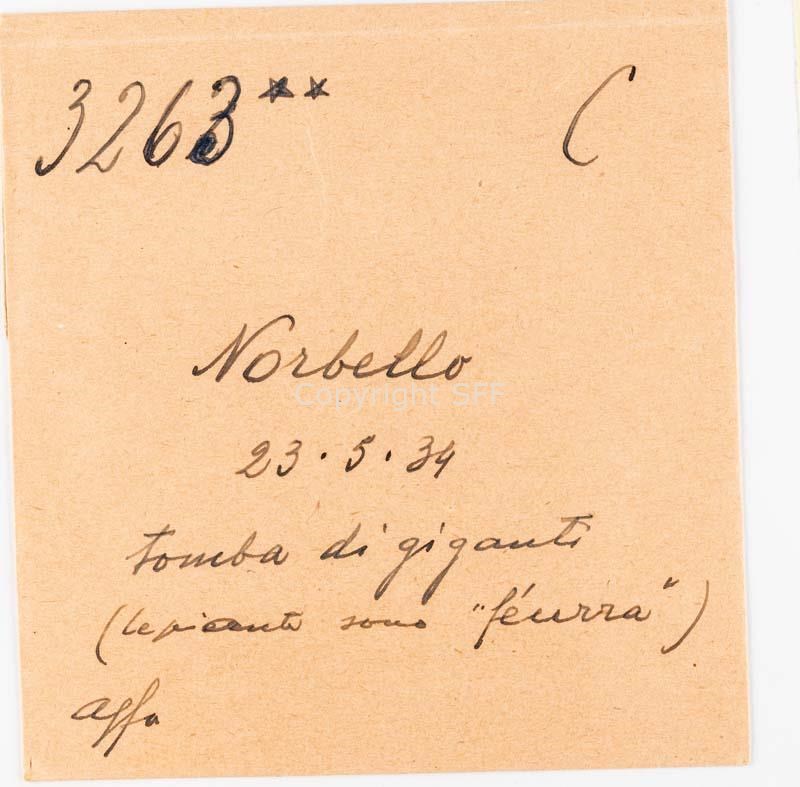 3263** C
Norbello
Copyright SFF
23.5.34
tomba di giganti
(le piante sono "féurra")
affa